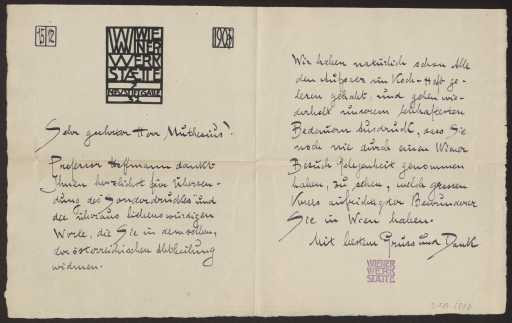 15/12
WIE
NER
WERK
STÄTTE
NEUSTIFTGASSE
32
190
Sehr geehrter Herr Muthesius!
Professor Hoffmann dankt
Ihnen herzlichst für Übersen-
dung des Sonderdruckes und
der überaus liebenswürdigen
Worte, die Sie in demselben,
der österreichischen Abteilung
widmen.
Wir haben natürlich schon Alle
den Aufsatz im Koch-Heft ge-
lesen gehabt und geben wie-
derholt unserem lebhaftesten
Bedauern Ausdruck, dass Sie
noch nie durch einen Wiener
Besuch Gelegenheit genommen
haben, zu sehen, welch grossen
Kreis aufrichtiger Bewunderer
Sie in Wien haben.
Mit bestem Gruss und Dank
WIENER
WERK
STÄTTE